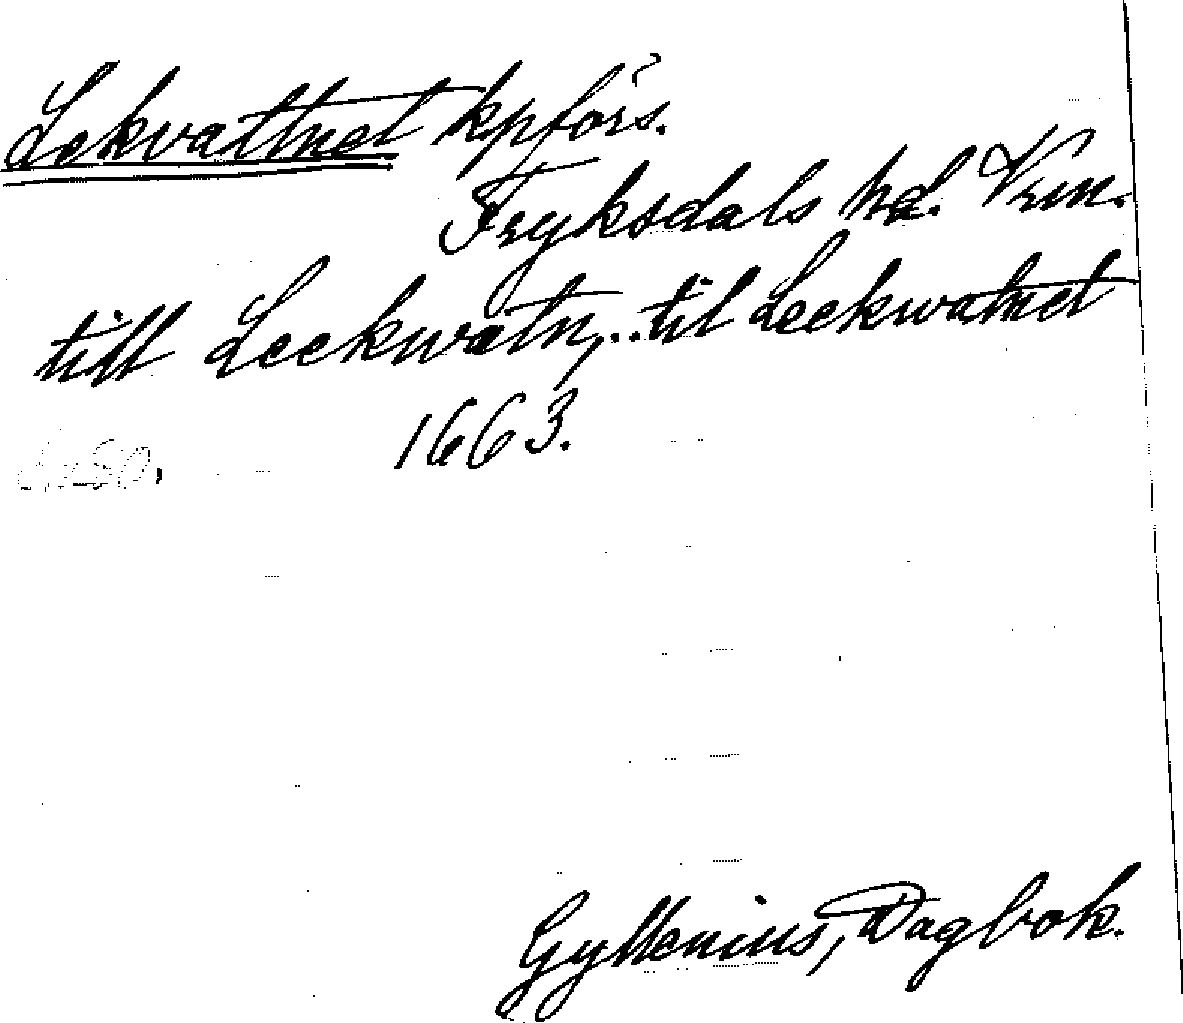 Lekvattnet kpförs.
Fryksdals hd. Vrm.
till Leekwatn,..til Leekwatnet
1663.
Gyllenius, Dagbok.